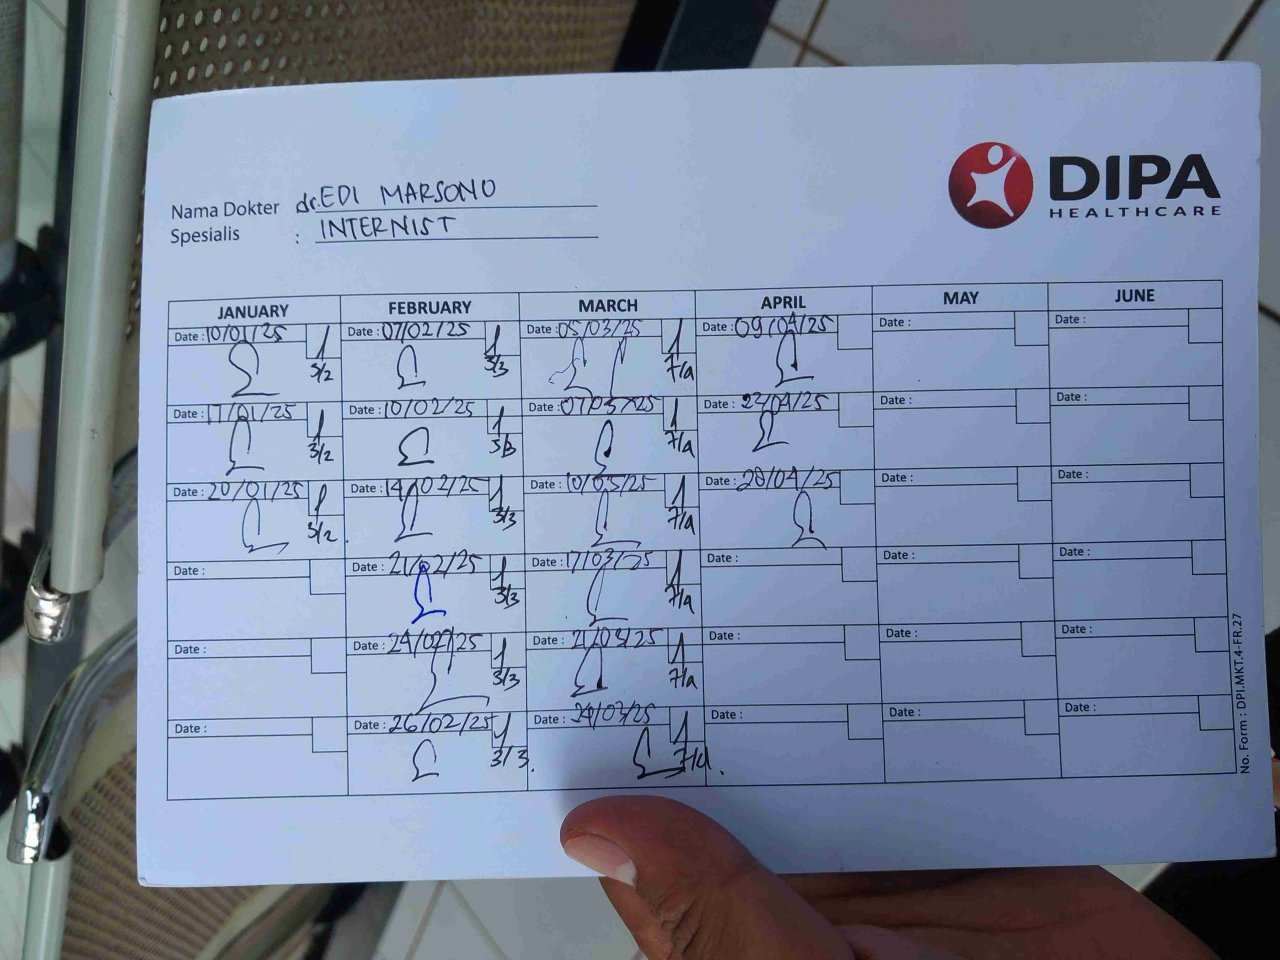 DIPA
HEALTHCARE
Nama Dokter dr. EDI MARSONO
Spesialis : INTERNIST
JANUARY FEBRUARY MARCH APRIL MAY JUNE
Date : 10/01/25 Date : 07/02/25 Date : 05/03/25 Date : 09/04/25 Date : Date :
3/2 3/3 7/a
Date : 17/01/25 Date : 10/02/25 Date : 07/03/25 Date : 23/04/25 Date : Date :
3/2 3/3 7/a
Date : 20/01/25 Date : 14/02/25 Date : 10/03/25 Date : 28/04/25 Date : Date :
3/2 3/3 7/a
Date : Date : 21/02/25 Date : 17/03/25 Date : Date : Date :
3/3 7/a
Date : Date : 24/02/25 Date : 21/03/25 Date : Date : Date :
3/3 7/a
Date : Date : 26/02/25 Date : 24/03/25 Date : Date : Date :
3/3. 7/a.
No. Form : DPI.MKT.4-FR.27